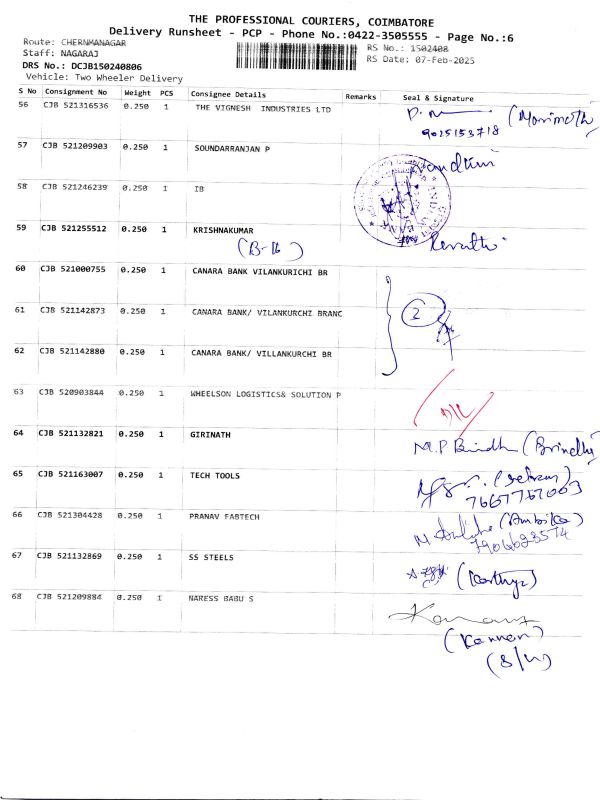 THE PROFESSIONAL COURIERS, COIMBATORE
Delivery Runsheet - PCP - Phone No.:0422-3505555 - Page No.:6
Route: CHERNMANAGAR
RS No.: 1502408
Staff: NAGARAJ
RS Date: 07-Feb-2025
DRS No.: DCJB150240806
Vehicle: Two Wheeler Delivery
S No Consignment No Weight PCS Consignee Details Remarks Seal & Signature
56 CJB 521316536 0.250 1 THE VIGNESH INDUSTRIES LTD
9025153718
57 CJB 521209903 0.250 1 SOUNDARRANJAN P
58 CJB 521246239 0.250 1 IB
59 CJB 521255512 0.250 1 KRISHNAKUMAR
(B-16)
60 CJB 521000755 0.250 1 CANARA BANK VILANKURICHI BR
61 CJB 521142873 0.250 1 CANARA BANK/ VILANKURCHI BRANC
2
62 CJB 521142880 0.250 1 CANARA BANK/ VILLANKURCHI BR
63 CJB 520903844 0.250 1 WHEELSON LOGISTICS& SOLUTION P
D/L
64 CJB 521132821 0.250 1 GIRINATH
65 CJB 521163007 0.250 1 TECH TOOLS
66 CJB 521304428 0.250 1 PRANAV FABTECH
(Ambika)
67 CJB 521132869 0.250 1 SS STEELS
68 CJB 521209884 0.250 1 NARESS BABU S
(Kannan)